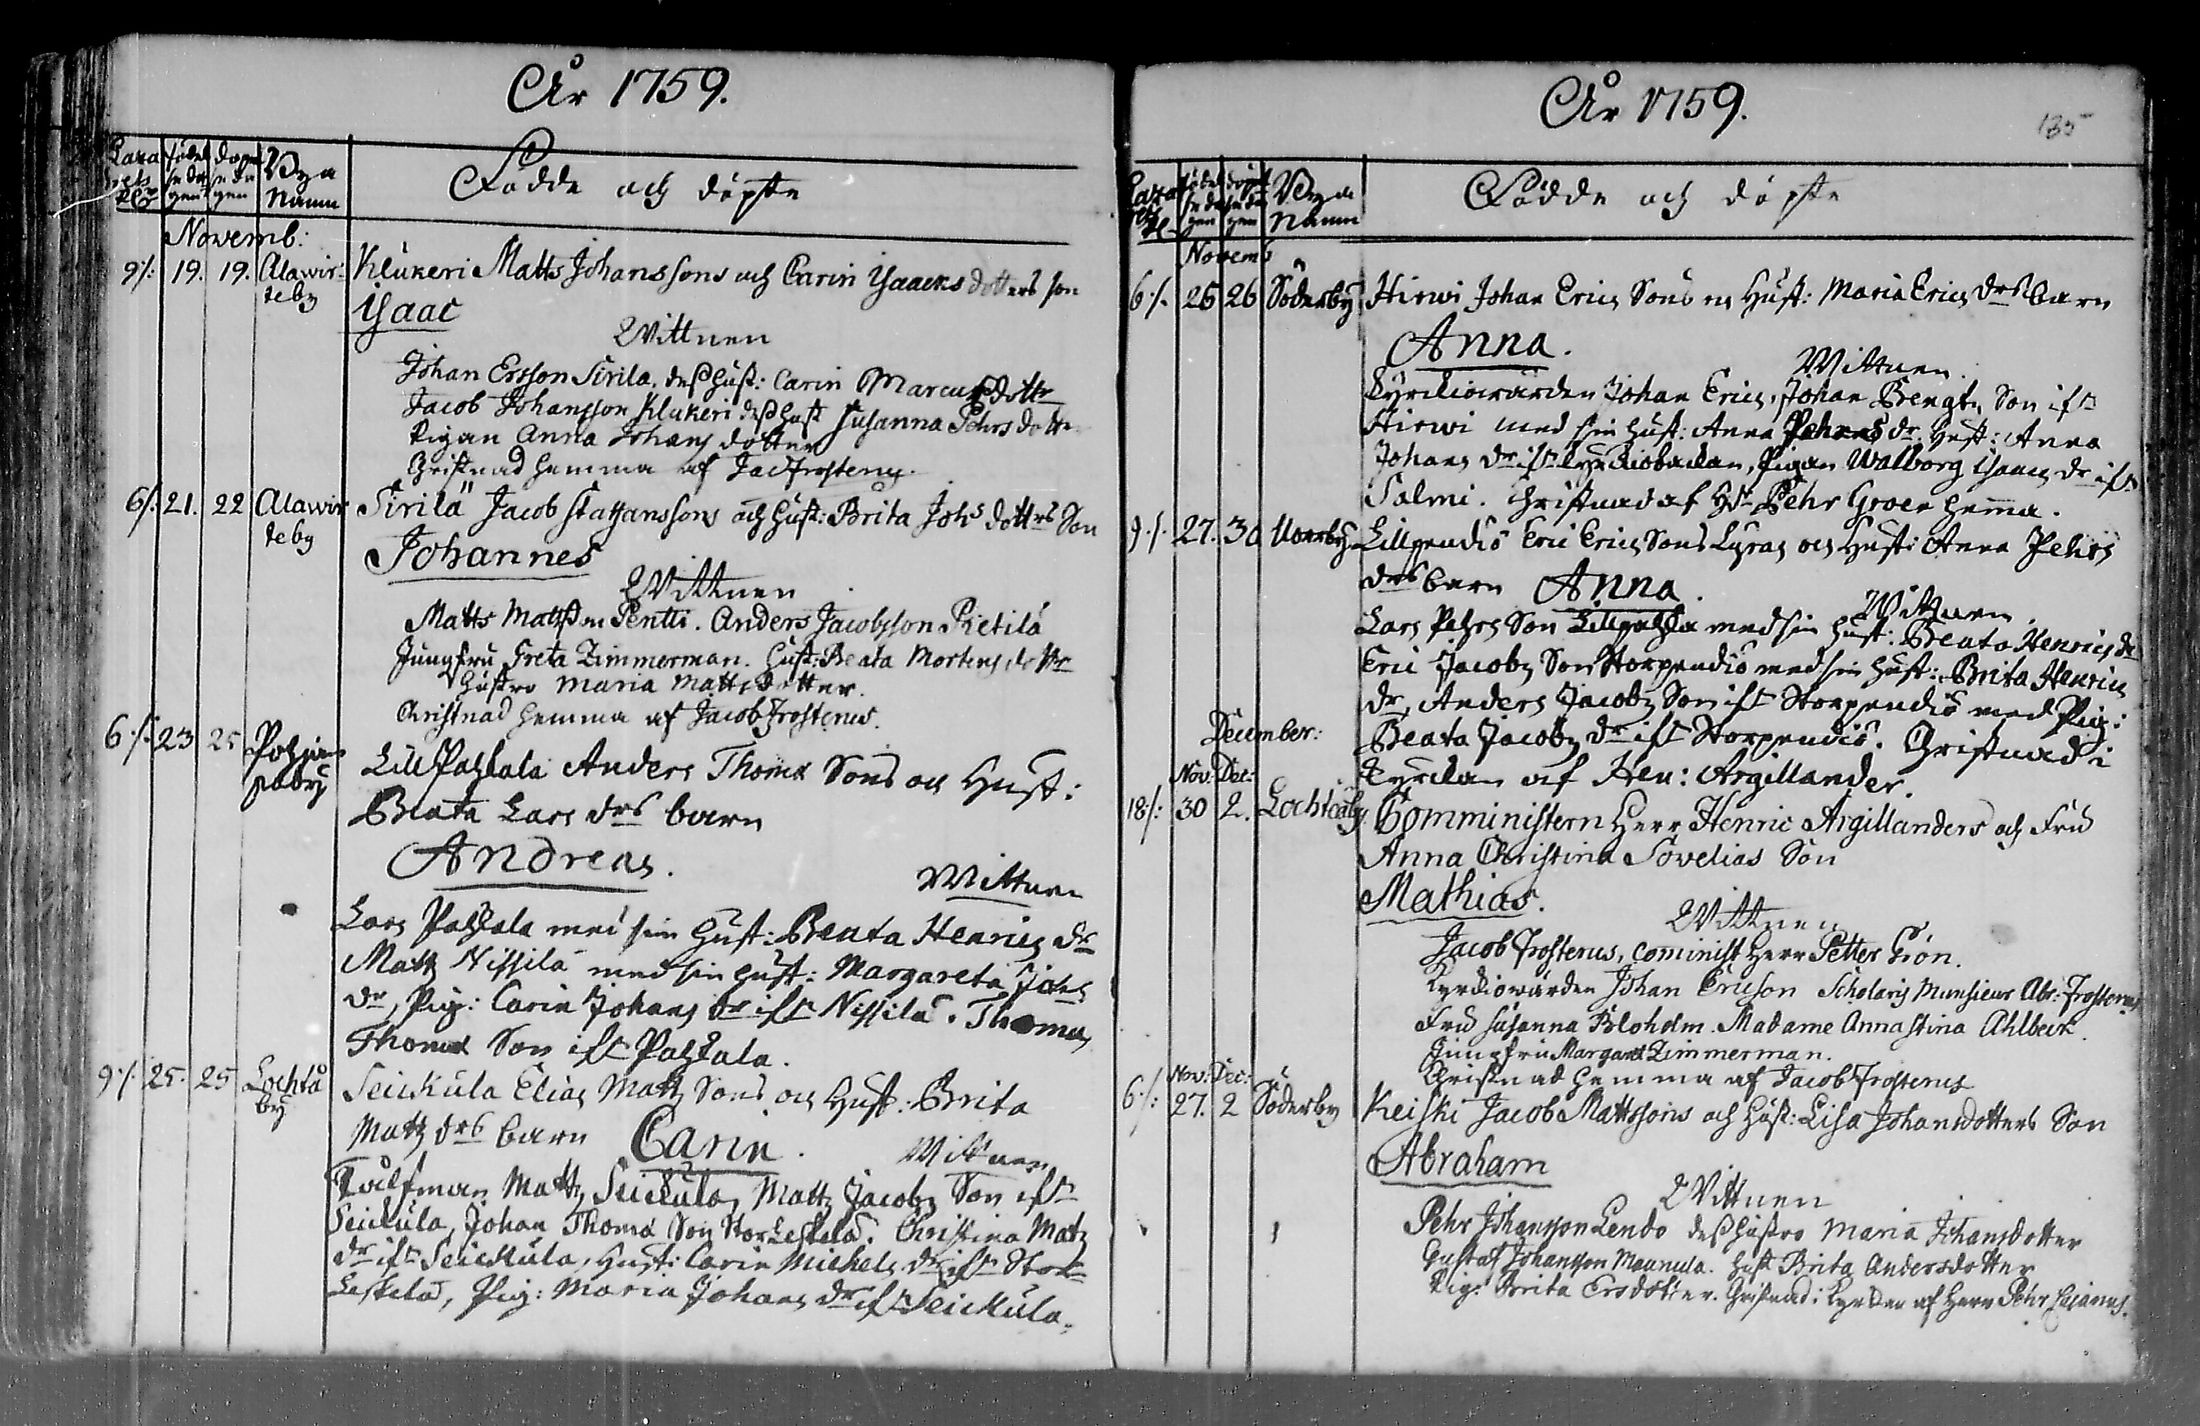 År 1759.
födel se da gen
döpel se da gen
Bya Namn
Födde och döpte
Novemb:
9/: 19. 19. Alawir-
teby
Klukeri Matts Johanssons och Carin Isaacks dotters son
Isaac
Wittnen
Johan Ersson Sirila, dess hust: Carin Marcusdottr
Jacob Johansson Klukeri dess hust Susanna Pehrs dotter
Pigan Anna Johans dotter
Christnad hemma af Jac Frosterus.
6/: 21. 22 Alawir
teby
Sirilä Jacob Hust: Brita Johs dottrs Son
Johannes
Wittnen
Matts Mattsson Pentti. Anders Jacobsson Pietilä
Jungfru Greta Zimmerman. Hust: Beata Mortens dottr
Hustro Maria Mattsdotter.
Christnad hemma af Jacob Frosterus.
6/: 23 25 Pohjan
paby
Lill Pahkala Anders Thomæ Sons och Hust:
Beata Lars drs barn
Andreas.
Wittnen
Lars Pahkala med sin hust: Beata Henrics dr
Matts Nissilä med sin hust: Margareta Johs
dr, Pig: Carin Johans dr ifrn Nissilä. Thomas
Thomæ Son ifrn Pahkala.
9/: 25. 25 Lochtå
by
Seickula Elias Matts Sons och Hust: Brita
Matts drs barn Carin.
Wittnen
Matts Seickula, Matts Jacobs Son ifrn
Seickula, Johan Thomæ Son Storleskelä. Christina Mats
dr ifrn Seickula, Hust: Carin Michels dr ifrn Stor
Leskelä, Pig: Maria Johans dr ifrn Seickula.
År 1759.
135
födel se da gen
döpel se da gen
Bya Namn
Födde och döpte
Novemb
6/. 25 26 Söderby
Hirwi Johan Erics Sons och Hust: Maria Erics drs barn
Anna.
Wittnen.
Kyrckiowärden Johan Erics, Johan Bengts Son ifrn
Hirwi med sin hust: Anna Pehrs dr. Hust: Anna
Johans dr ifrn Kyrckiobackan, Pigan Walborg Isaacs dr ifrn
Salmi. Christnad af Hr Pehr Groen hemma.
9/: 27. 30
Lillpendis Eric Erics Sons och Hust: Anna Pehrs
drs barn Anna.
Wittnen.
Lars Pehrs Son Lillpahka med sin hust: Beata Henrics dr
Eric Jacobs Son Storpendis med sin hust: Brita Henrics
dr, Anders Jacobs Son ifrn Storpendis med Pig:
Beata Jacobs dr ifrn Storpendis. Christnad i
Kyrckan af Hen: Argillander.
December:
Nov: Dec:
18/: 30 2. Lochtåby
Comministern Herr Henric Argillanders och Fru
Anna Christina Sovelias Son
Mathias.
Wittnen
Jacob Frosterus, Cominist Herr Petter Grön.
Kyrckiowärden Johan Ericson Scholaris Munsieur Abr: Frosterus
Fru Susanna Bloholm. Madame Anna Stina Ahlbeck.
Jungfru Margaret Zimmerman.
Christnad hemma af Jacob Frosterus
Nov: Dec:
6/: 27. 2 Söderby
Keiski Jacob Mattssons och Hust: Lisa Johansdotters Son
Abraham
Wittnen
Pehr Johansson Lendo dess hustro Maria Johansdotter
Gustaf Johansson Maunula. Hust Brita Andersdotter
Pig: Brita Ersdotter. Christnad i Kyrckan af Herr Pehr Cajanus.